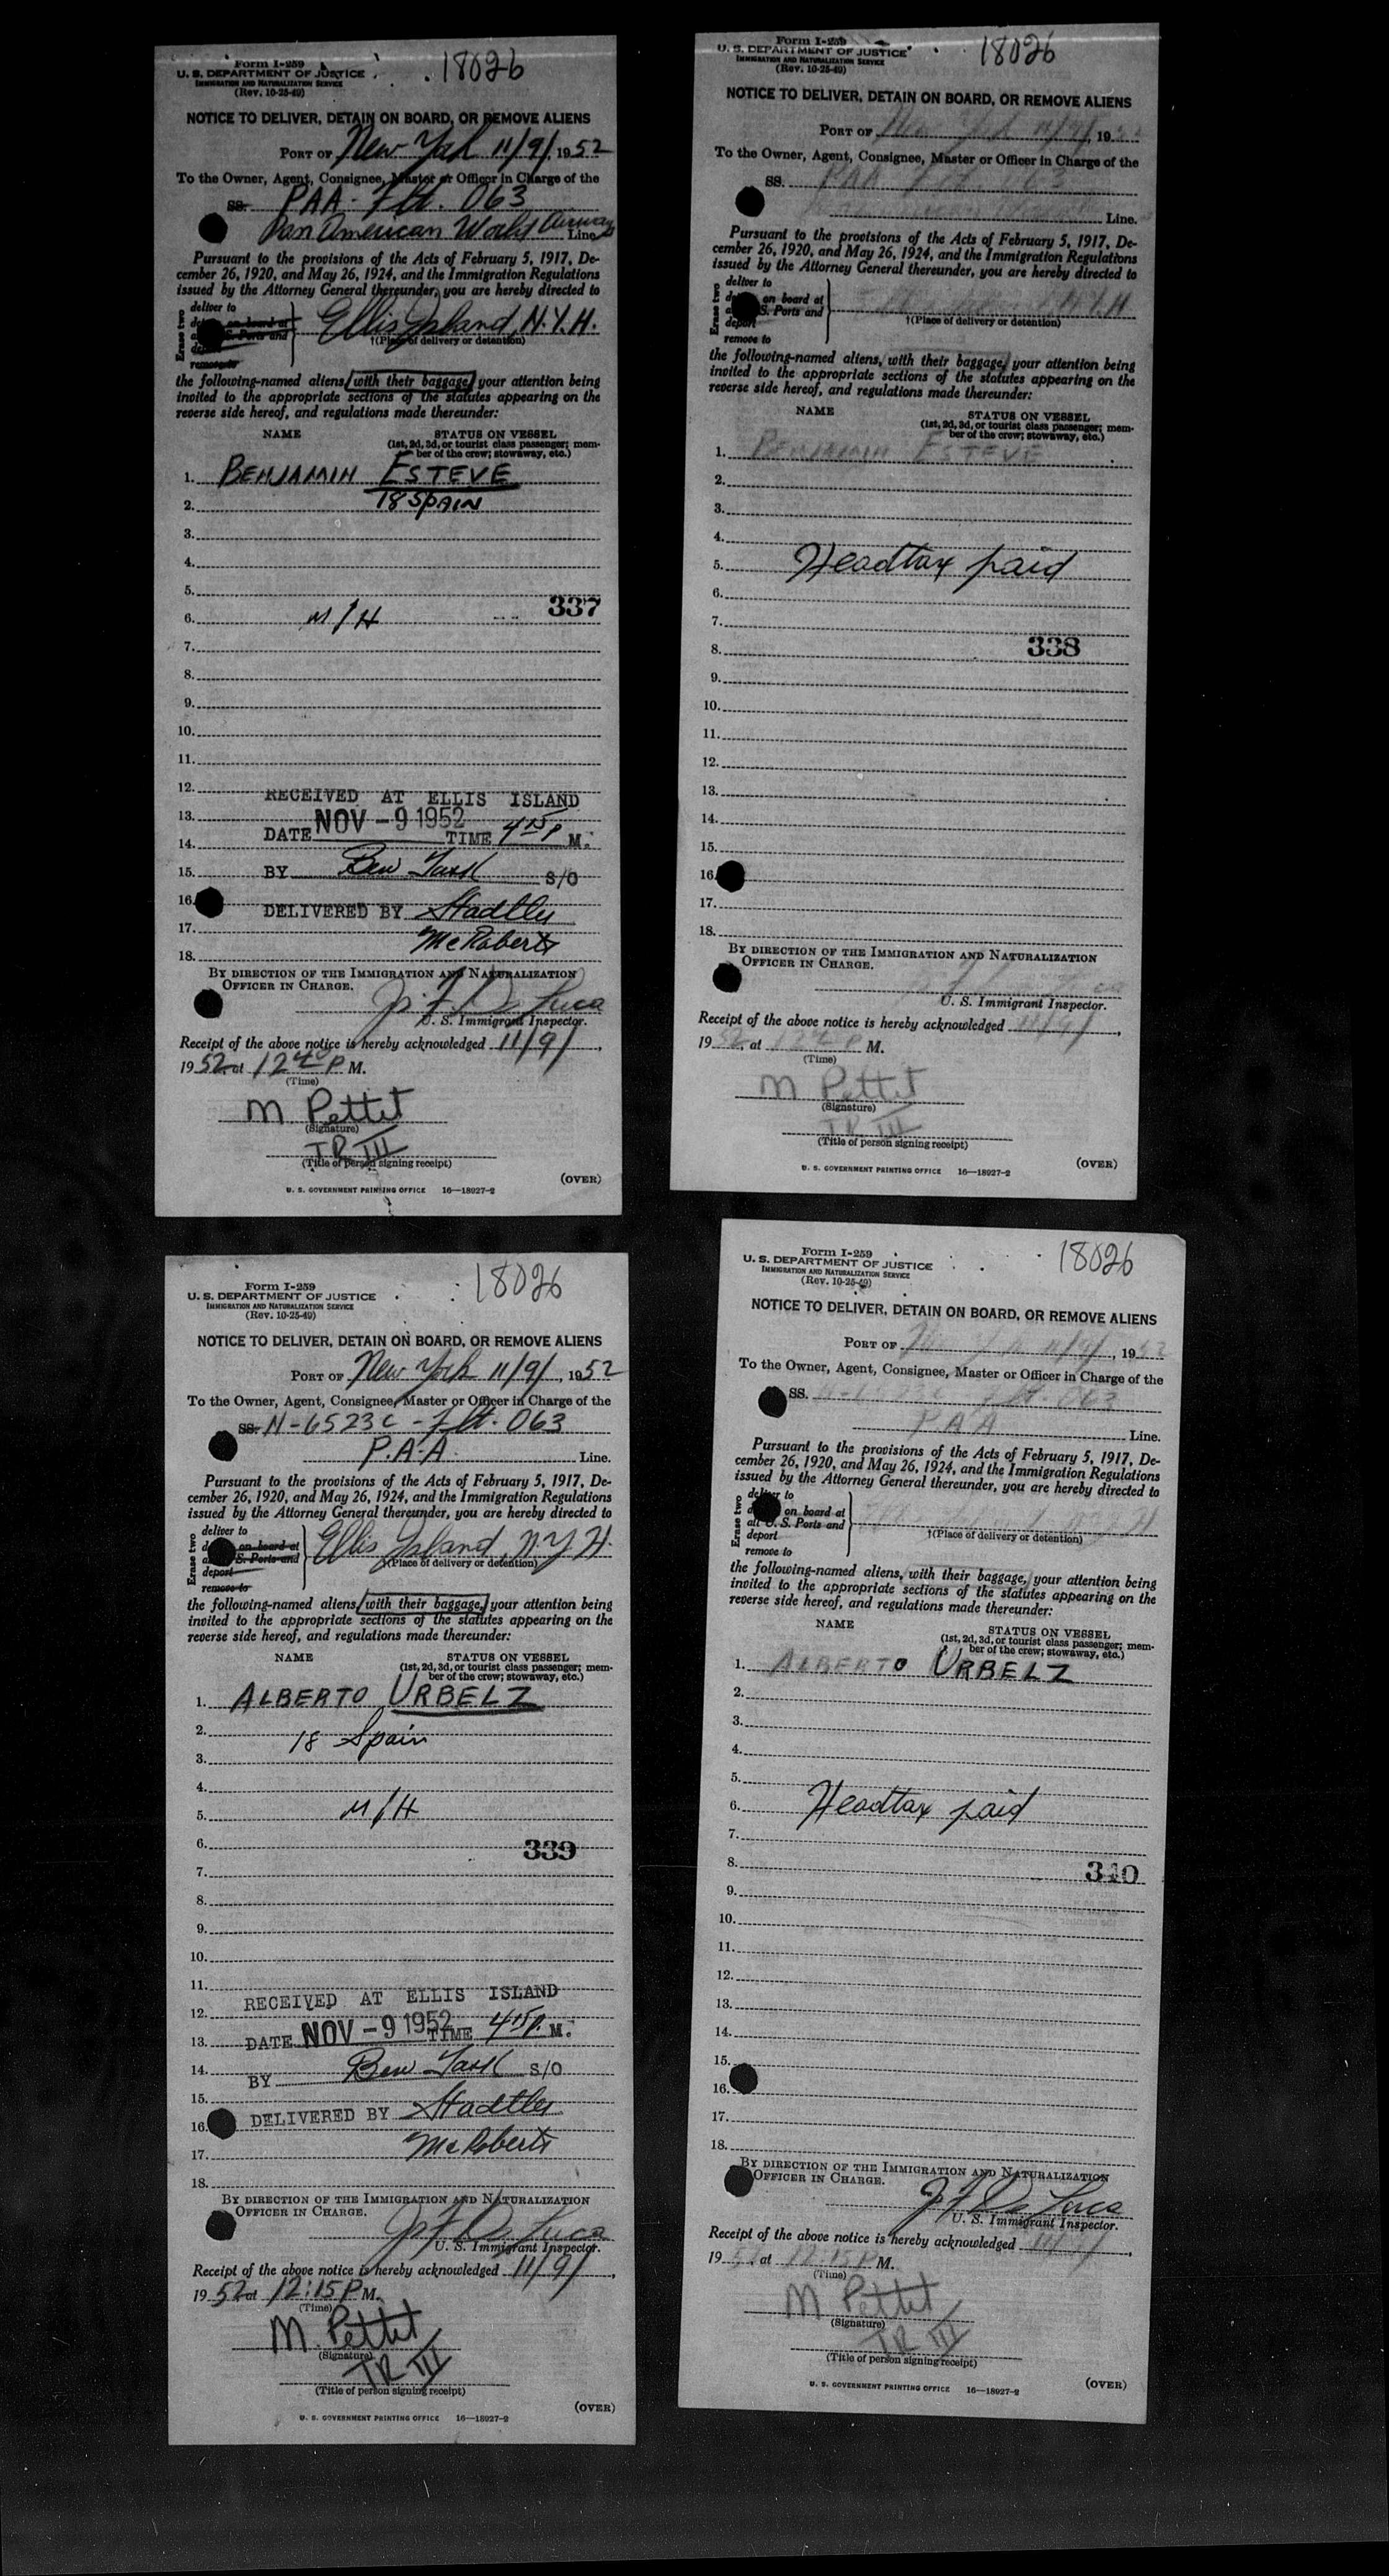 Form I-259
U. S. DEPARTMENT OF JUSTICE
IMMIGRATION AND NATURALIZATION SERVICE
(Rev. 10-25-49)
18026
NOTICE TO DELIVER, DETAIN ON BOARD, OR REMOVE ALIENS
PORT OF New York 11/9/, 1952
To the Owner, Agent, Consignee, Master or Officer in Charge of the
SS. PAA - Flt. 063
Pan American World Airways Line.
Pursuant to the provisions of the Acts of February 5, 1917, De-
cember 26, 1920, and May 26, 1924, and the Immigration Regulations
issued by the Attorney General thereunder, you are hereby directed to
Erase two
deliver to
on board at
S. Ports and
remove to
Ellis Island, N.Y.H.
†(Place of delivery or detention)
the following-named aliens, with their baggage, your attention being
invited to the appropriate sections of the statutes appearing on the
reverse side hereof, and regulations made thereunder:
NAME
STATUS ON VESSEL
(1st, 2d, 3d, or tourist class passenger; mem-
ber of the crew; stowaway, etc.)
1. BENJAMIN ESTEVE
2. 18 SPAIN
3.
4.
5.
337
6. M/H
7.
8.
9.
10.
11.
12.
RECEIVED AT ELLIS ISLAND
13.
DATE NOV -9 1952 TIME 4 15 P M.
14.
15. BY Ben S/O
16.
DELIVERED BY Stadtler
17.
McRoberts
18.
BY DIRECTION OF THE IMMIGRATION AND NATURALIZATION
OFFICER IN CHARGE.
Jos. F. De Luca
U. S. Immigrant Inspector.
Receipt of the above notice is hereby acknowledged 11/9/,
1952, at 12 P M.
(Time)
M. Pettit
(Signature)
TR III
(Title of person signing receipt)
(OVER)
U. S. GOVERNMENT PRINTING OFFICE 16—18927-2
Form I-259
U. S. DEPARTMENT OF JUSTICE
IMMIGRATION AND NATURALIZATION SERVICE
(Rev. 10-25-49)
18026
NOTICE TO DELIVER, DETAIN ON BOARD, OR REMOVE ALIENS
PORT OF New York 11/9/, 1952
To the Owner, Agent, Consignee, Master or Officer in Charge of the
SS. PAA Flt. 063
Line.
Pursuant to the provisions of the Acts of February 5, 1917, De-
cember 26, 1920, and May 26, 1924, and the Immigration Regulations
issued by the Attorney General thereunder, you are hereby directed to
Erase two
deliver to
on board at
S. Ports and
deport
remove to
N.Y.H
†(Place of delivery or detention)
the following-named aliens, with their baggage, your attention being
invited to the appropriate sections of the statutes appearing on the
reverse side hereof, and regulations made thereunder:
NAME
STATUS ON VESSEL
(1st, 2d, 3d, or tourist class passenger; mem-
ber of the crew; stowaway, etc.)
1. BENJAMIN ESTEVE
2.
3.
4.
5. Headtax paid
6.
7.
338
8.
9.
10.
11.
12.
13.
14.
15.
16.
17.
18.
BY DIRECTION OF THE IMMIGRATION AND NATURALIZATION
OFFICER IN CHARGE.
U. S. Immigrant Inspector.
Receipt of the above notice is hereby acknowledged 11/9/,
1952, at 12 P M.
(Time)
M Pettit
(Signature)
TR III
(Title of person signing receipt)
(OVER)
U. S. GOVERNMENT PRINTING OFFICE 16—18927-2
Form I-259
U. S. DEPARTMENT OF JUSTICE
IMMIGRATION AND NATURALIZATION SERVICE
(Rev. 10-25-49)
18026
NOTICE TO DELIVER, DETAIN ON BOARD, OR REMOVE ALIENS
PORT OF New York 11/9/, 1952
To the Owner, Agent, Consignee, Master or Officer in Charge of the
SS. N-6523C - Flt. 063
P.A.A. Line.
Pursuant to the provisions of the Acts of February 5, 1917, De-
cember 26, 1920, and May 26, 1924, and the Immigration Regulations
issued by the Attorney General thereunder, you are hereby directed to
Erase two
deliver to
on board at
S. Ports and
deport
remove to
Ellis Island, N.Y.H.
†(Place of delivery or detention)
the following-named aliens, with their baggage, your attention being
invited to the appropriate sections of the statutes appearing on the
reverse side hereof, and regulations made thereunder:
NAME
STATUS ON VESSEL
(1st, 2d, 3d, or tourist class passenger; mem-
ber of the crew; stowaway, etc.)
1. ALBERTO URBELZ
2. 18 Spain
3.
4.
5. M/H
6. 339
7.
8.
9.
10.
11.
RECEIVED AT ELLIS ISLAND
12.
13. DATE NOV -9 1952 TIME 4 15 P. M.
14. BY Ben S/O
15.
16. DELIVERED BY Stadtler
17. McRoberts
18.
BY DIRECTION OF THE IMMIGRATION AND NATURALIZATION
OFFICER IN CHARGE.
Jos F De Luca
U. S. Immigrant Inspector.
Receipt of the above notice is hereby acknowledged 11/9/,
1952 at 12:15 P M.
(Time)
M. Pettit
(Signature)
TR III
(Title of person signing receipt)
(OVER)
U. S. GOVERNMENT PRINTING OFFICE 16—18927-2
Form I-259
U. S. DEPARTMENT OF JUSTICE
IMMIGRATION AND NATURALIZATION SERVICE
(Rev. 10-25-49)
18026
NOTICE TO DELIVER, DETAIN ON BOARD, OR REMOVE ALIENS
PORT OF New York 11/9/, 1952
To the Owner, Agent, Consignee, Master or Officer in Charge of the
SS. N-6523C Flt. 063
PAA Line.
Pursuant to the provisions of the Acts of February 5, 1917, De-
cember 26, 1920, and May 26, 1924, and the Immigration Regulations
issued by the Attorney General thereunder, you are hereby directed to
Erase two
deliver to
on board at
all U. S. Ports and
deport
remove to
†(Place of delivery or detention)
the following-named aliens, with their baggage, your attention being
invited to the appropriate sections of the statutes appearing on the
reverse side hereof, and regulations made thereunder:
NAME
STATUS ON VESSEL
(1st, 2d, 3d, or tourist class passenger; mem-
ber of the crew; stowaway, etc.)
1. ALBERTO URBELZ
2.
3.
4.
5.
6. Headtax paid
7.
8. 340
9.
10.
11.
12.
13.
14.
15.
16.
17.
18.
BY DIRECTION OF THE IMMIGRATION AND NATURALIZATION
OFFICER IN CHARGE.
J F De Luca
U. S. Immigrant Inspector.
Receipt of the above notice is hereby acknowledged 11/9/,
1952, at 12:15 P M.
(Time)
M Pettit
(Signature)
TR III
(Title of person signing receipt)
(OVER)
U. S. GOVERNMENT PRINTING OFFICE 16—18927-2